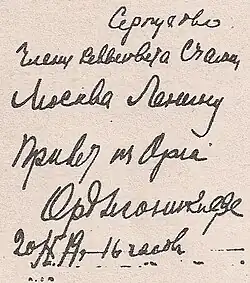 Серпухово
Члену Реввоенсовета Сталину
Москва Ленину
Привет из Орла
Орджоникидзе
20/X 19 г. 16 часов